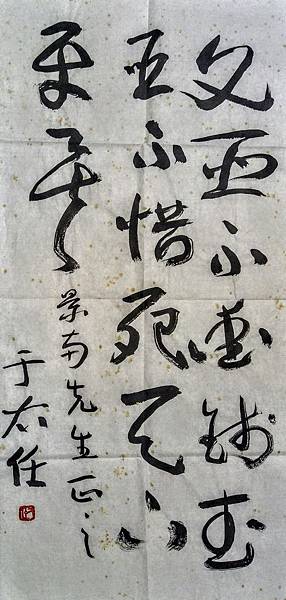 文臣不愛錢武
臣不惜死天下
平矣
景南先生正之
于右任